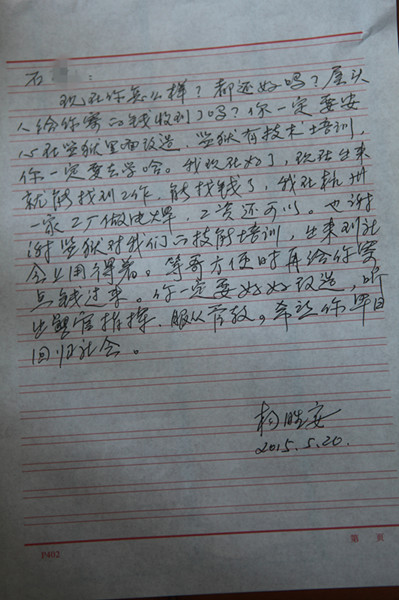 石 :
现在你怎么样？都还好吗？屋头
人给你寄的钱收到了吗？你一定要安
心在监狱里面改造，监狱有技术培训，
你一定要去学哈。我现在好了，现在出来
就能找到工作，能找钱了，我在杭州
一家工厂做电焊，工资还可以。也谢
谢监狱对我们的技能培训，出来到社
会上用得着。等哥方便时再给你寄
点钱过来。你一定要好好改造，听
从警官指挥，服从管教。希望你早日
回归社会。
2015.5.20.
P402
第 頁